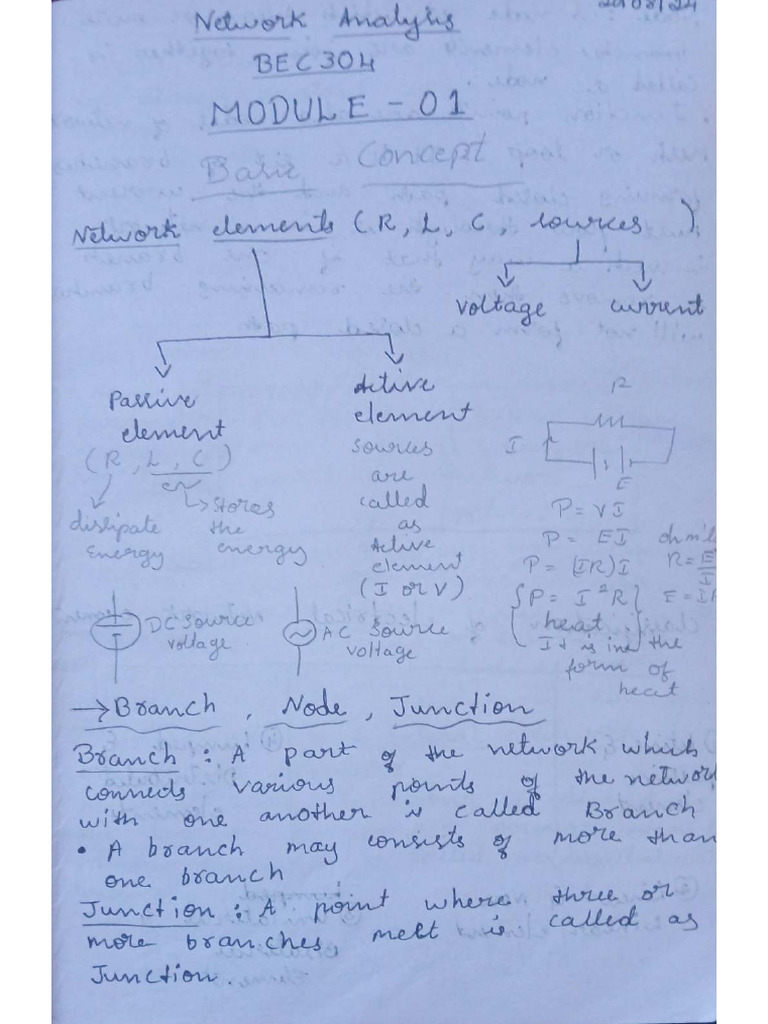 Network Analysis
BEC304
MODULE - 01
Basic Concept
Network elements (R, L, C, sources)
voltage current
Passive element
(R, L, C)
dissipate Energy
Stores the energy
Active element
sources
are
called
as
Active
element
(I or V)
R
I
E
P = VI
P = EI
P = (IR)I
{P = I²R}
heat
It is in the
form of
heat
ohm's
R = E/I
DC source voltage
AC source voltage
→ Branch, Node, Junction
Branch : A part of the network which
connects various points of the network
with one another is called Branch
• A branch may consists of more than
one branch
Junction : A point where three or
more branches meet is called as
Junction.